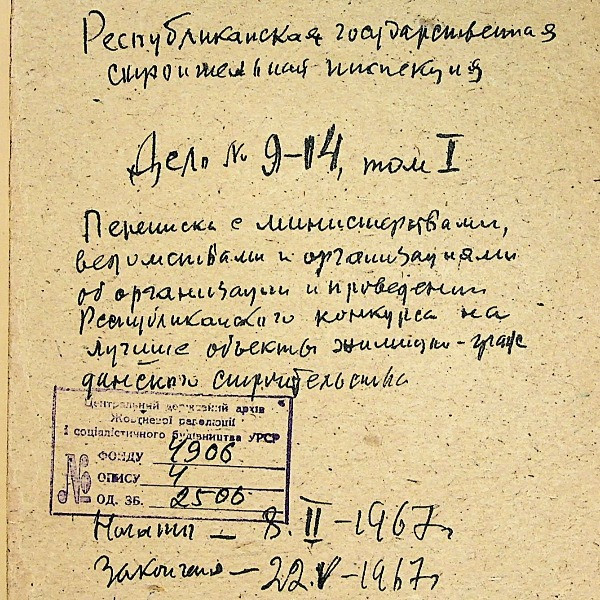 Республиканская государственная
строительная инспекция
Дело № 9-14, том I
Переписка с министерствами,
ведомствами и организациями
об организации и проведении
Республиканского конкурса на
лучшие объекты жилищно-граж
данского строительства
Центральний державний архів
Жовтневої революції
і соціалістичного будівництва УРСР
№
ФОНДУ 4906
ОПИСУ 1
ОД. ЗБ. 2506
Начато – 8.II-1967г
Закончено – 22.V-1967г